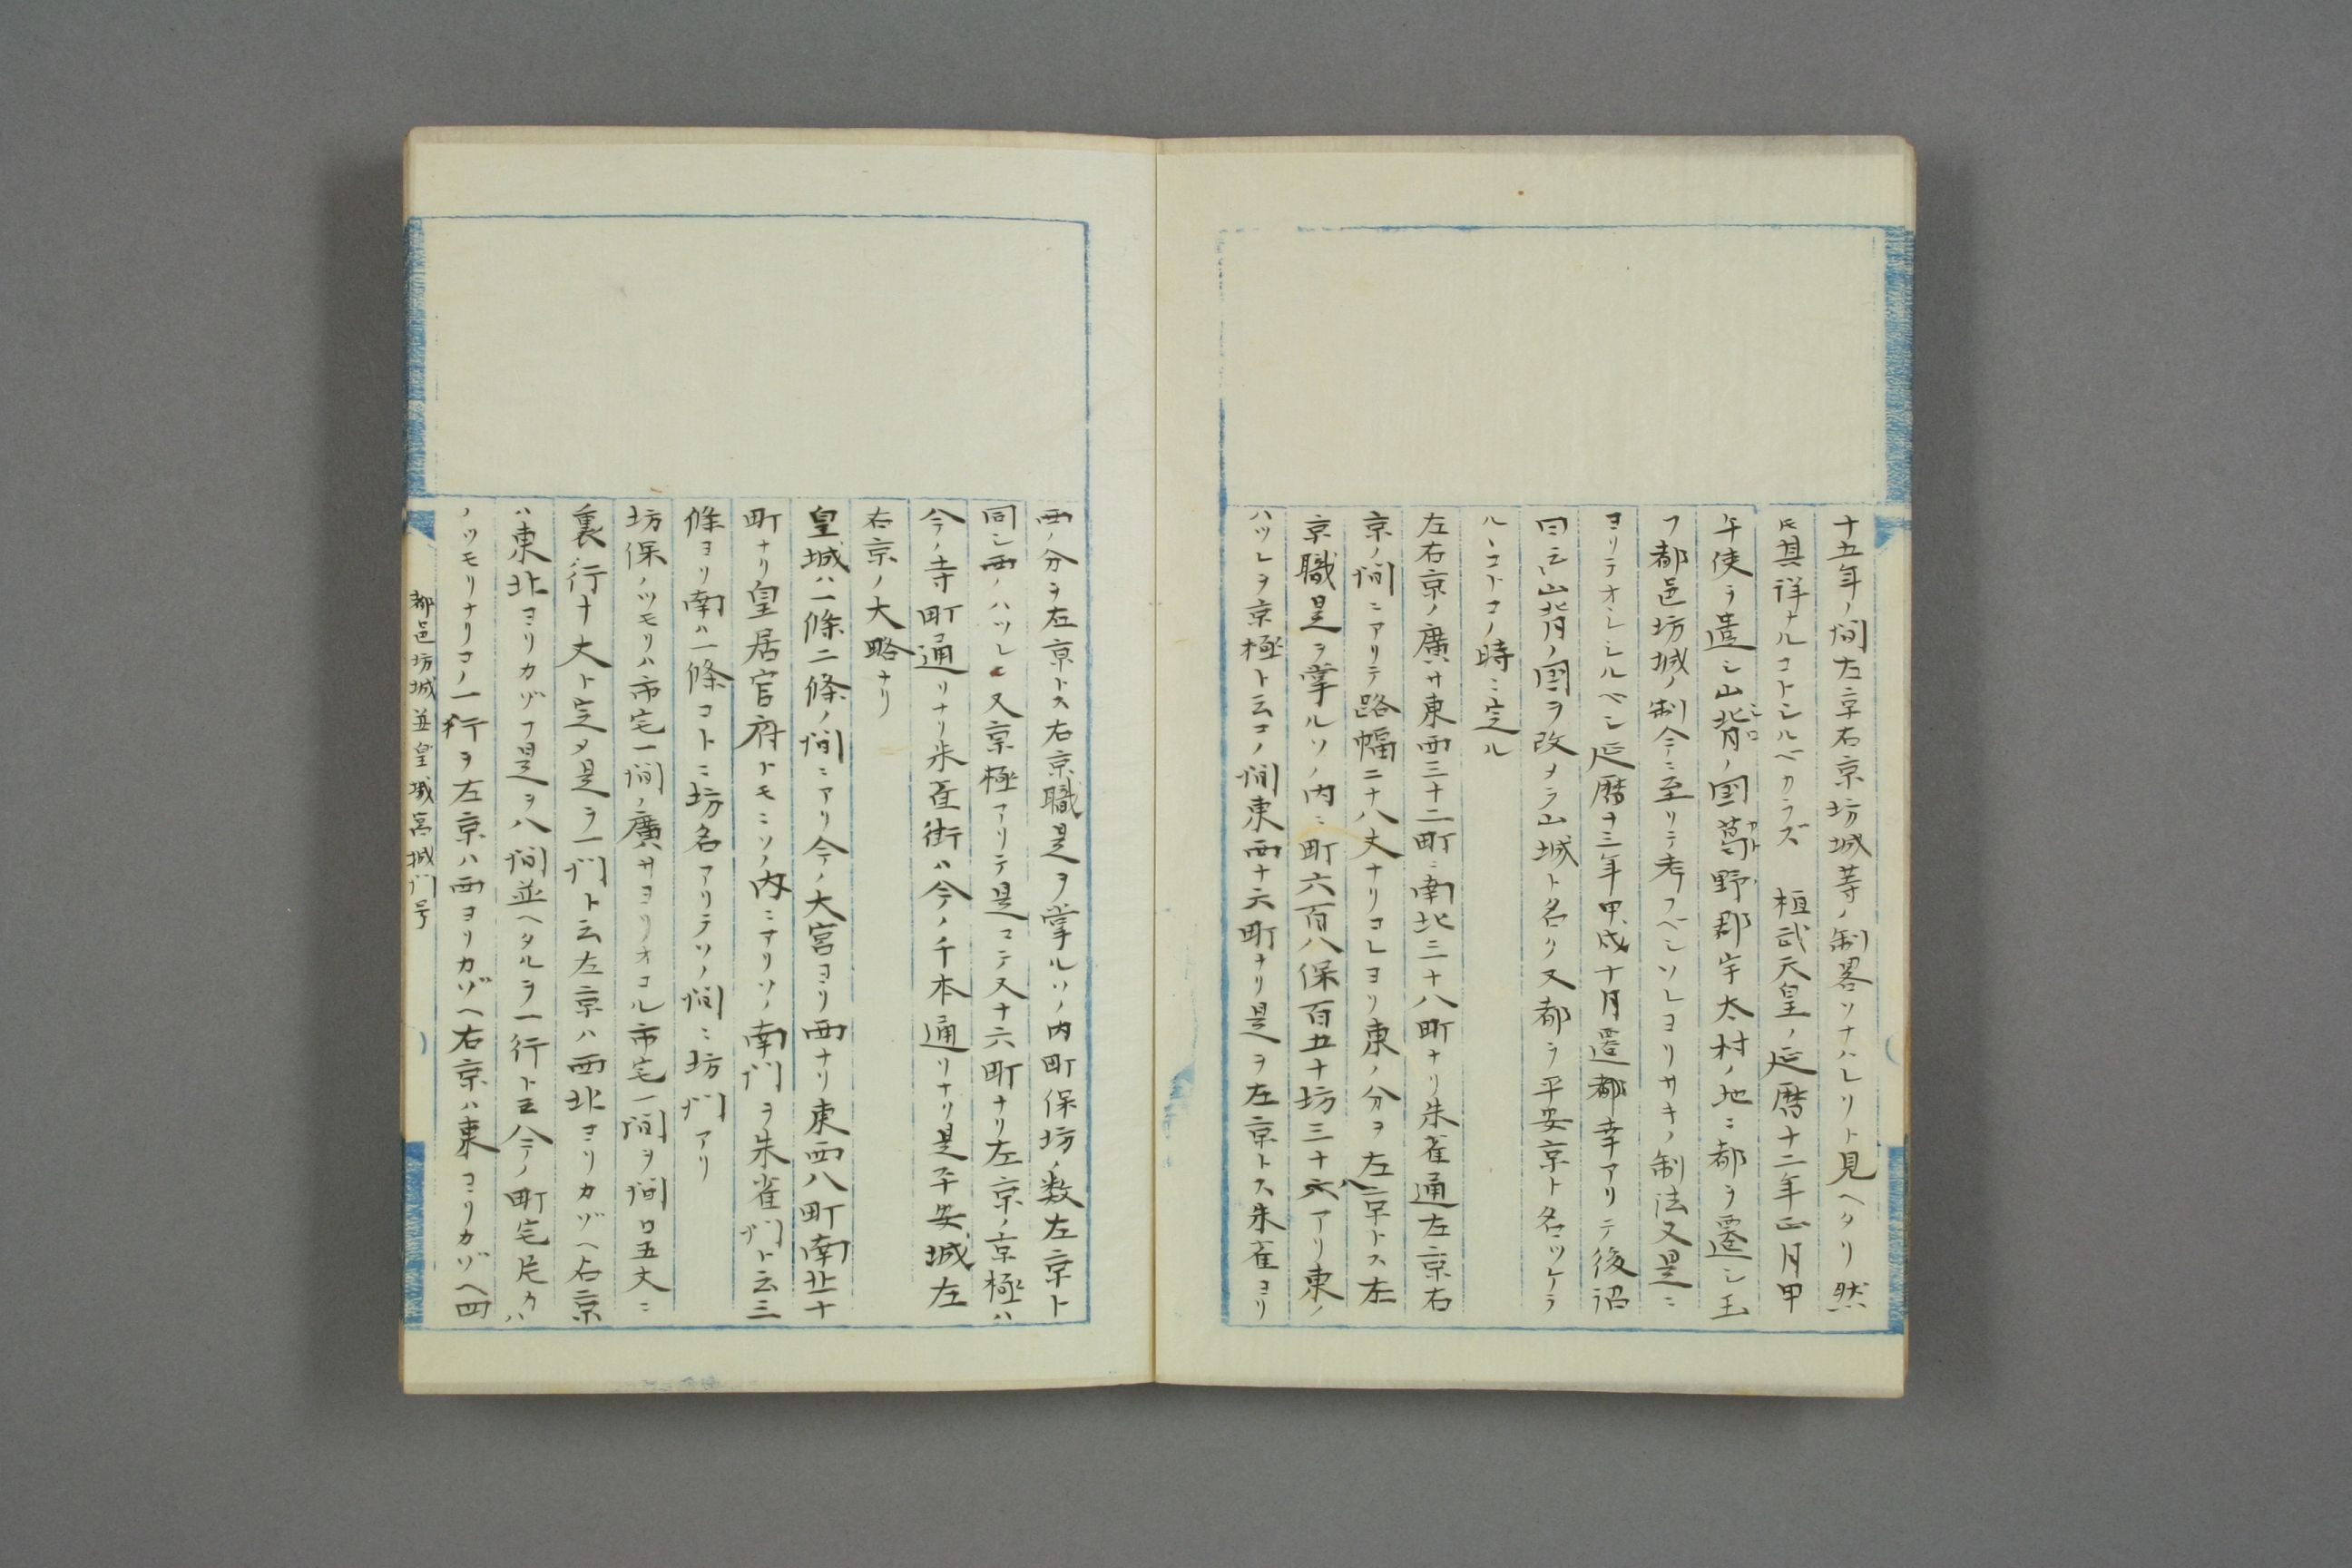 十五年ノ間左京右京坊城等ノ制畧ソナハレリト見ヘタリ然
𪜈其詳ナルコトシルベカラズ　桓武天皇ノ延暦十二年正月甲
午使ヲ遣シ山背ノ國葛野郡宇太村ノ地ニ都ヲ遷シ玉
フ都邑坊城ノ制今ニ至リテ考フベシソレヨリサキノ制法又是ニ
ヨリテオシシルベシ延暦十三年甲戌十月遷都幸アリテ後詔
曰云山背ノ國ヲ改メテ山城ト名リ又都ヲ平安京ト名ツケラ
ルヽコトコノ時ニ定ル
左右京ノ廣サ東西三十二町ニ南北三十八町ナリ朱雀通左京右
京ノ間ニアリテ路幅二十八丈ナリコレヨリ東ノ分ヲ左京トス左
京職是ヲ掌ルソノ内ニ町六百八保百五十坊三十八アリ東ノ
ハツレヲ京極ト云コノ間東西十六町ナリ是ヲ左京トス朱雀ヨリ
西ノ分ヲ右京トス右京職是ヲ掌ルソノ内町保坊ノ数左京ト
同シ西ノハツレ又京極アリテ是コテ又十六町ナリ左京ノ京極ハ
今ノ寺町通リナリ朱雀街ハ今ノ千本通リナリ是平安城左
右京ノ大略ナリ
皇城ハ一條二條ノ間ニアリ今ノ大宮ヨリ西ナリ東西八町南北十
町ナリ皇居官府トモニソノ内ニアリソノ南門ヲ朱雀門ト云三
條ヨリ南ハ一條コトニ坊名アリテソノ間ニ坊門アリ
坊保ノツモリハ市宅一間ノ廣サヨリオコル市宅一間ヲ間口五丈ニ
裏行十丈ト定メ是ヲ一門ト云左京ハ西北ヨリカゾヘ右京
ハ東北ヨリカゾフ是ヲ八間並ヘタルヲ一行ト云今ノ町宅片カハ
ノツモリナリコノ一行ヲ左京ハ西ヨリカゾヘ右京ハ東ヨリカゾヘ四
都邑坊城並皇城宮城門号